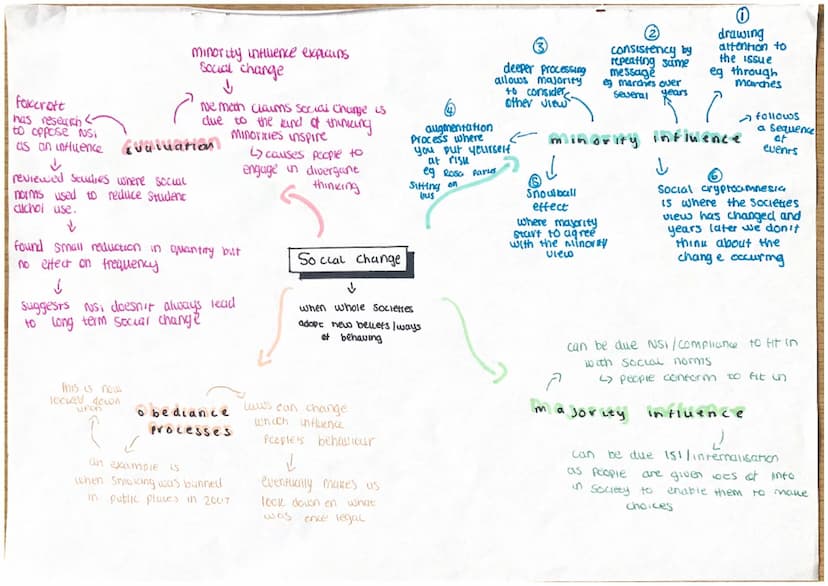 minority influence explains
social change
Nemeth claims social change is
due to the kind of thinking
minorities inspire
↳ causes people to
engage in divergent
thinking
Foxcroft
has research
to oppose NSI
as an influence
evaluation
reviewed studies where social
norms used to reduce student
alchol use.
found small reduction in quantity but
no effect on frequency
suggests NSI doesn't always lead
to long term social change
①
drawing
attention to
the issue
eg through
marches
②
consistency by
repeating same
message
eg marches over
several years
③
deeper processing
allows majority
to consider
other view
④
augmentation
process where
you put yourself
at risk
eg Rosa Parks
sitting on
bus
minority influence
follows
a sequence of
events
⑤
snowball
effect
where majority
start to agree
with the minority
view
⑥
Social cryptomnesia
is where the societies
view has changed and
years later we don't
think about the
change occuring
Social change
when whole societies
adopt new beliefs/ways
of behaving
this is now
looked down
upon
obediance
processes
laws can change
which influence
people's behaviour
an example is
when smoking was banned
in public places in 2007
eventually makes us
look down on what
was once legal
can be due NSI/compliance to fit in
with social norms
↳ people conform to fit in
majority influence
can be due ISI/internalisation
as people are given lots of info
in society to enable them to make
choices